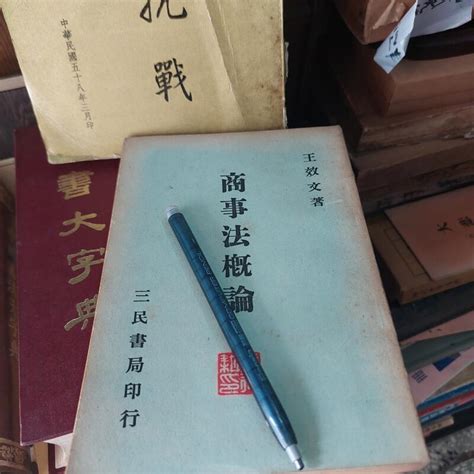 抗戰
中華民國五十八年三月印
書大字典
王效文著
商事法概論
三民書局印行